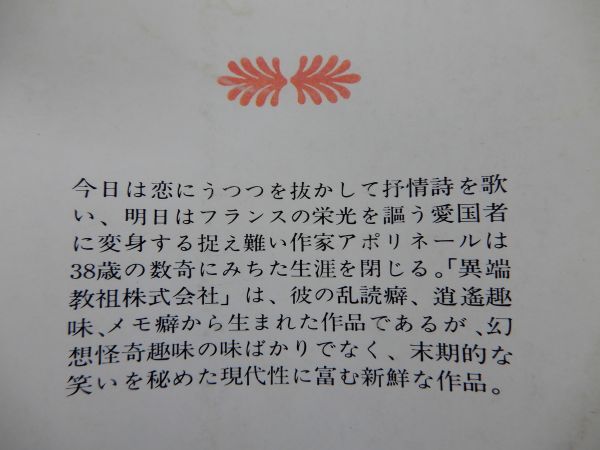 今日は恋にうつつを抜かして抒情詩を歌
い、明日はフランスの栄光を謳う愛国者
に変身する捉え難い作家アポリネールは
38歳の数奇にみちた生涯を閉じる。「異端
教祖株式会社」は、彼の乱読癖、逍遙趣
味、メモ癖から生まれた作品であるが、幻
想怪奇趣味の味ばかりでなく、末期的な
笑いを秘めた現代性に富む新鮮な作品。